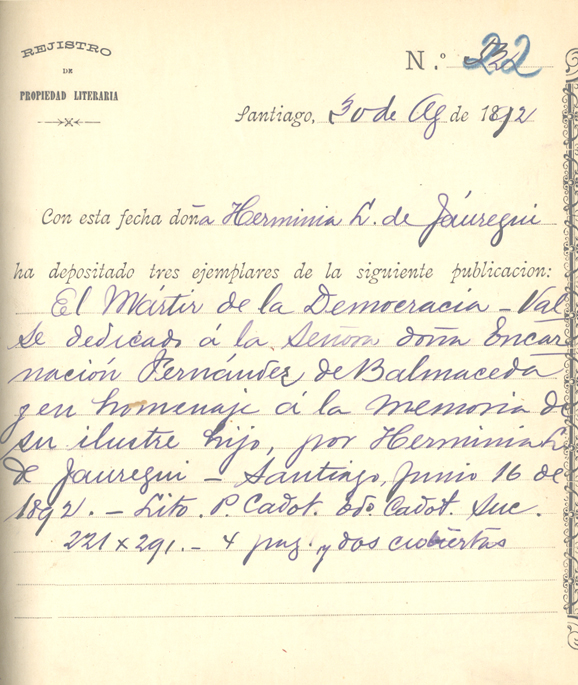 REJISTRO
DE
PROPIEDAD LITERARIA
N.º 22
Santiago, 30 de Ag de 1892
Con esta fecha doña Herminia L. de Jáuregui
ha depositado tres ejemplares de la siguiente publicacion:
El Mártir de la Democracia - Val
se dedicado á la Señora doña Encar
nación Fernández de Balmaceda
y en homenaje á la memoria de
su ilustre hijo, por Herminia L.
de Jáuregui - Santiago, Junio 16 de
1892. - Lito. P. Cadot. Edo. Cadot. Suc.
221 x 291. - 4 pag. y dos cubiertas